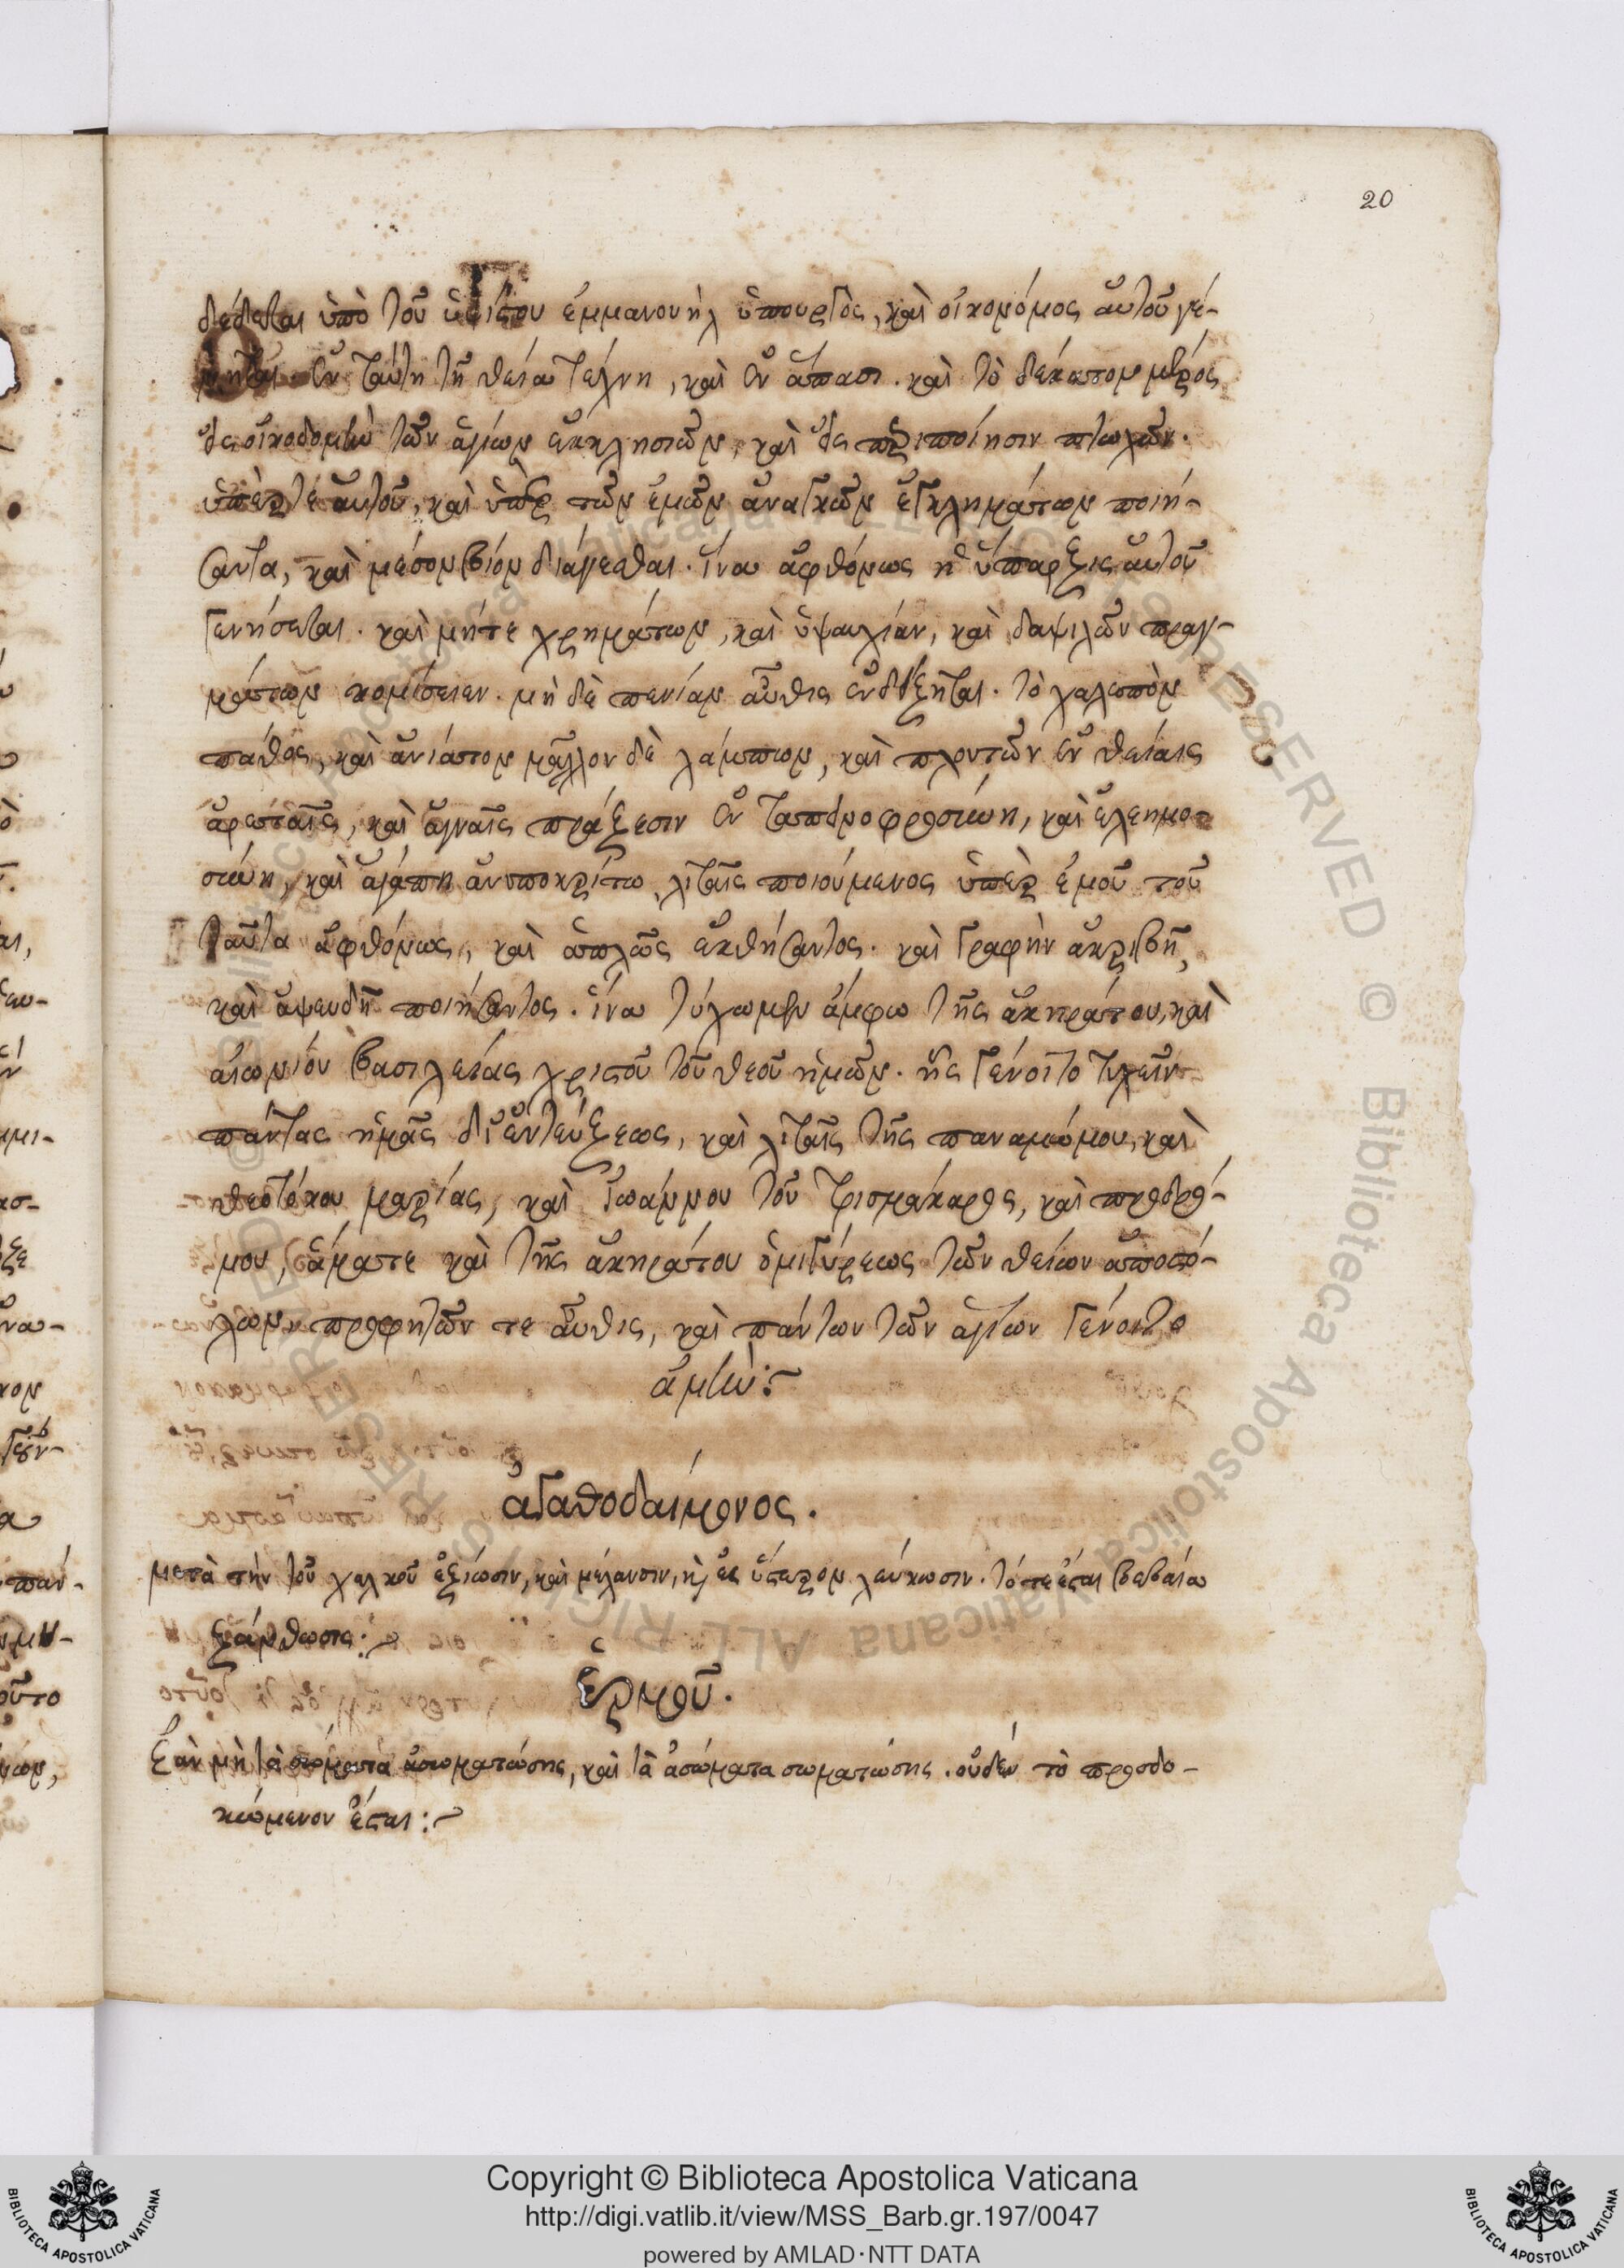 20
δέδεται ὑπὸ τοῦ ὑψίστου ἐμμανουὴλ ὑπουργὸς, καὶ οἰκονόμος αὐτοῦ γέ-
νηται ἐν ταύτη τῆ θεία τέχνη, καὶ ἐν ἅπασι. καὶ τὸ δέκατον μέρος
εἰς οἰκοδομὴν τῶν ἁγίων ἐκκλησιῶν, καὶ εἰς περιποίησιν πτωχῶν.
ὑπέρ τὲ αὐτοῦ, καὶ ὑπὲρ τῶν ἐμῶν ἀναγκῶν ἐγκλημάτων ποιή-
σαντα, καὶ μέσον βίον διάγεσθαι. ἵνα ἀφθόνως ἡ ὕπαρξις αὐτοῦ
γενήσεται. καὶ μήτε χρημάτων, καὶ ὑψαυχίαν, καὶ δαψιλῶν πραγ-
μάτων κομίσειεν. μὴ δὲ πενίαν αὖθις ἐνδέξηται. τὸ χαλεπὸν
πάθος, καὶ ἀνιάτον μᾶλλον δὲ λάμπων, καὶ πλουτῶν ἐν θείαις
ἀρεταῖς, καὶ ἁγναῖς πράξεσιν ἐν ταπεινοφροσύνη, καὶ ἐλεημο-
σύνη, καὶ ἀγάπη ἀνυποκρίτω, λιταῖς ποιούμενος ὑπὲρ ἐμοῦ τοῦ
ταῦτα ἀφθόνως, καὶ ἁπλῶς ἐκθήσαντος. καὶ γραφὴν ἀκριβῆ,
καὶ ἀψευδῆ ποιήσαντος. ἵνα τύχωμεν ἄμφω τῆς ἀκηράτου, καὶ
αἰωνίου βασιλείας χριστοῦ τοῦ θεοῦ ἡμῶν. ἧς γένοιτο τυχεῖν
πάντας ἡμᾶς δι' ἐντεύξεως, καὶ λιταῖς τῆς παναμώμου, καὶ
θεοτόκου μαρίας, καὶ ἰωάννου τοῦ τρισμάκαρος, καὶ προδρό-
μου, ἅματε καὶ τῆς ἀκηράτου ὁμιγύρεως τῶν θείων ἀποστό-
λων, προφητῶν τε αὖθις, καὶ πάντων τῶν ἁγίων γένοιτο
ἀμήν:
ἀγαθοδαίμονος.
μετὰ τὴν τοῦ χαλκοῦ ἐξίωσιν, καὶ μέλανσιν, καὶ ἐς ὕστερον λεύκωσιν. τότε ἔσται βεβαία
ξάνθωσις:
ἑρμοῦ.
ἐὰν μὴ τὰ σώματα ἀσωματώσης, καὶ τὰ ἀσώματα σωματώσης. οὐδὲν τὸ προσδο-
κώμενον ἔσται:
Copyright © Biblioteca Apostolica Vaticana
http://digi.vatlib.it/view/MSS_Barb.gr.197/0047
powered by AMLAD·NTT DATA